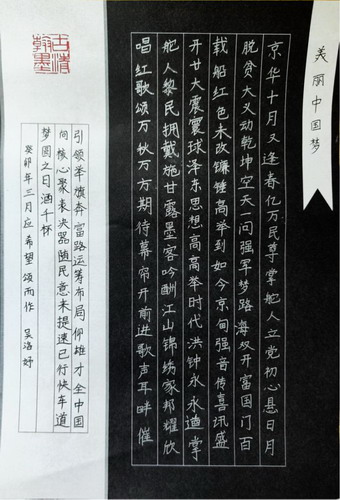 美丽中国梦
京华十月又逢春亿万民尊掌舵人立党初心悬日月
脱贫大义动乾坤空天一问强军梦路海双开富国门百
载船红色未改镰锤高举到如今京甸强音传喜讯盛
开廿大震寰球泽东思想高高举时代洪钟永永遒掌
舵人黎民拥戴施甘露墨客吟酬江山锦绣家邦耀欣
唱红歌颂万秋万方期待幕帘开前进歌声耳畔催
引领举旗奔富路运筹布局仰雄才全中国
向核心聚表决器随民意来提速已行快车道
梦圆之日酒千杯
癸卯年三月应希望颂而作 吴洛妤
古清翰墨